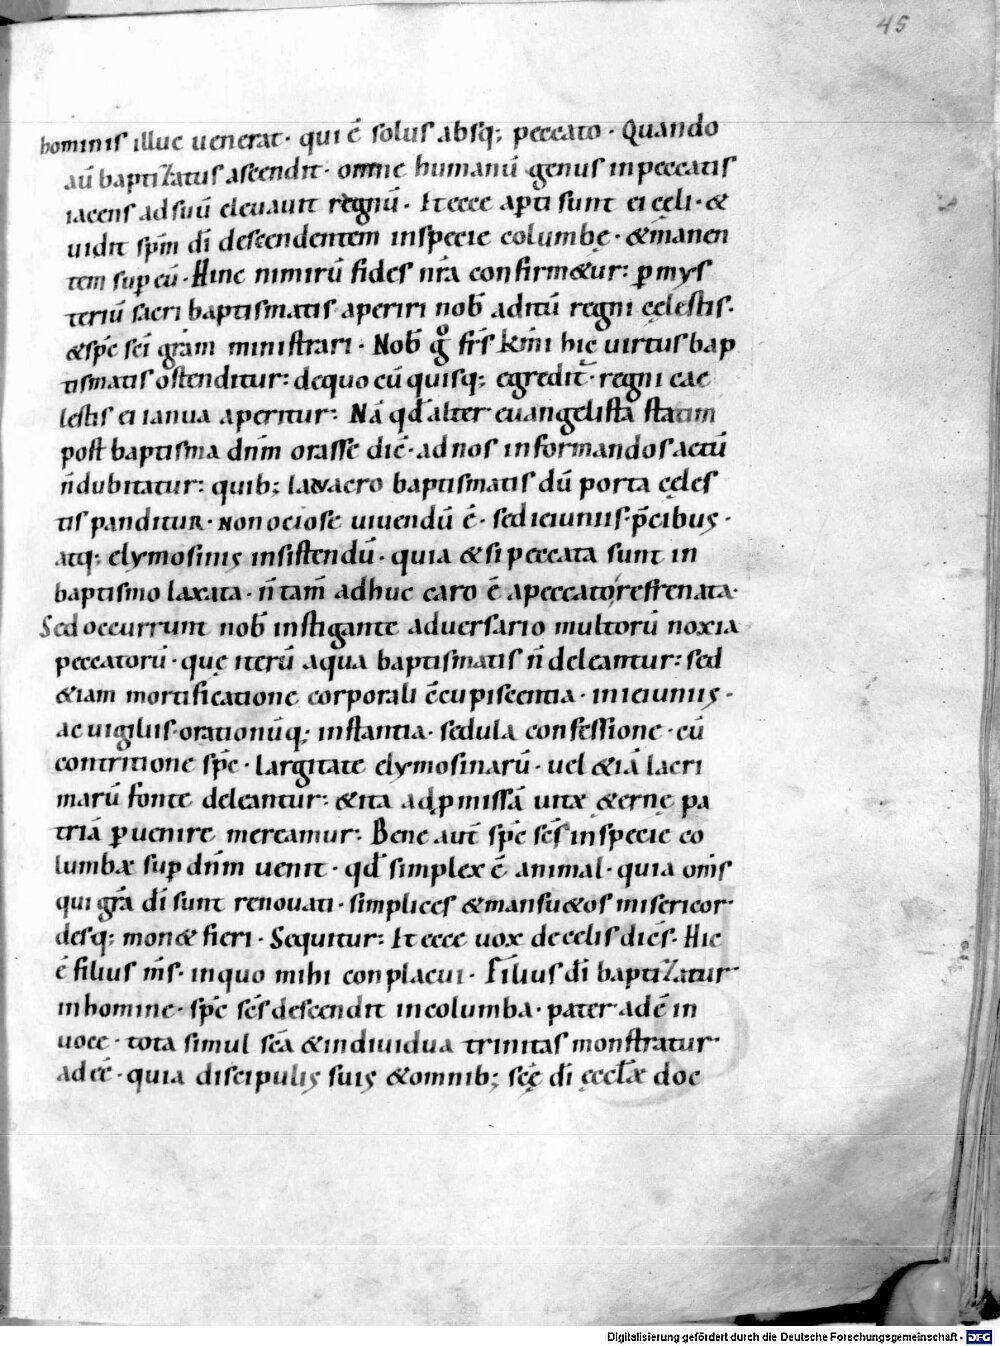 45
hominis illuc uenerat· qui ē solus absq; peccato· Quando
aū baptizatus ascendit· omne humanū genus in peccatis
iacens ad suū eleuauit regnū· Et ecce apti sunt ei cęli· &
uidit spm̄ dī descendentem in specie columbę· & manen
tem sup eū· Hinc nimirū fides nr̄a confirm&ur: p mys
teriū sacri baptismatis aperiri nob̄ aditū regni cęlestis·
& spc̄ sc̄i grām ministrari· Nob̄ g̊ frs̄ km̄i hic uirtus bap
tismatis ostenditur: de quo cū quisq; egredit̄· regni cae
lestis ei ianua aperitur: Nā qđ alter euangelista statim
post baptisma dnm̄ orasse dic̄· ad nos informandos actū
n̄ dubitatur: quib; lauacro baptismatis dū porta cęles
tis panditur· non ociose uiuendū ē· sed ieiuniis· p̄cibus·
atq; elymosinis insistendū· quia & si peccata sunt in
baptismo laxata· n̄ tam̄ adhuc caro ē a peccato refrenata·
Sed occurrunt nob̄ instigante aduersario multorū noxia
peccatorū· quę iterū aqua baptismatis n̄ deleantur: sed
&iam mortificatione corporali c̄cupiscentia· in ieiuniis·
ac uigiliis· orationūq; instantia· sedula confessione· cū
contritione spc̄· largitate elymosinarū· uel &iā lacri
marū fonte deleantur: & ita ad pmissā uitæ &ernę pa
triā puenire mereamur: Bene aut̄ spc̄ sc̄s in specie co
lumbæ sup dnm̄ uenit· qđ simplex ē animal· quia om̄s
qui grā dī sunt renouati· simplices & mansu&os misericor
desq; mon& fieri· Sequitur: Et ecce uox de celis dicēs· Hic
ē filius m̄s· in quo mihi conplacui· Filius dī baptizatur
in homine· spc̄ sc̄s descendit in columba· pater adē in
uoce· tota simul sc̄a & indiuidua trinitas monstratur
adeē· quia discipulis suis & omnib; sc̄ę dī ęccłæ doc
Digitalisierung gefördert durch die Deutsche Forschungsgemeinschaft - DFG